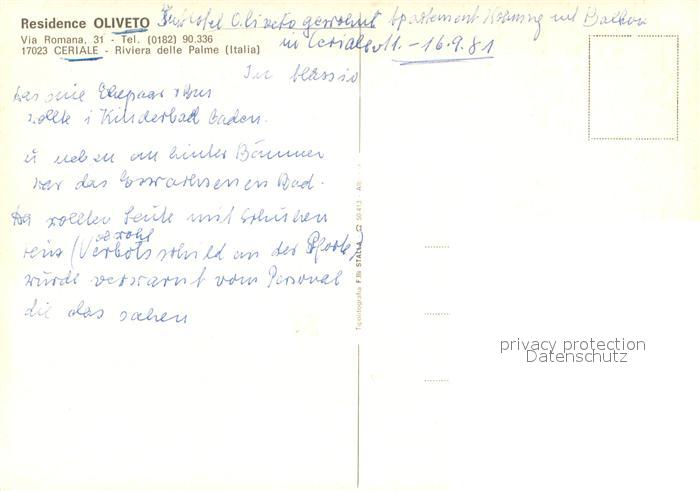 Residence OLIVETO Im Hotel Oliveto gewohnt Apartement Wohnung mit Balkon
Via Romana, 31 - Tel. (0182) 90.336
in Ceriale 1. - 16.9.81
17023 CERIALE - Riviera delle Palme (Italia)
In Alassio
das eine Ehepaar
wollte i Kinderbad baden.
u neben an hinter Bäumen
war das Erwachsenen Bad.
Da wollten Leute mit Schuhen
obwohl
rein (Verbotsschild an der Pforte)
wurde verwarnt vom Personal
die das sahen
Tipolitografia F.lli STALLA 50413
privacy protection
Datenschutz